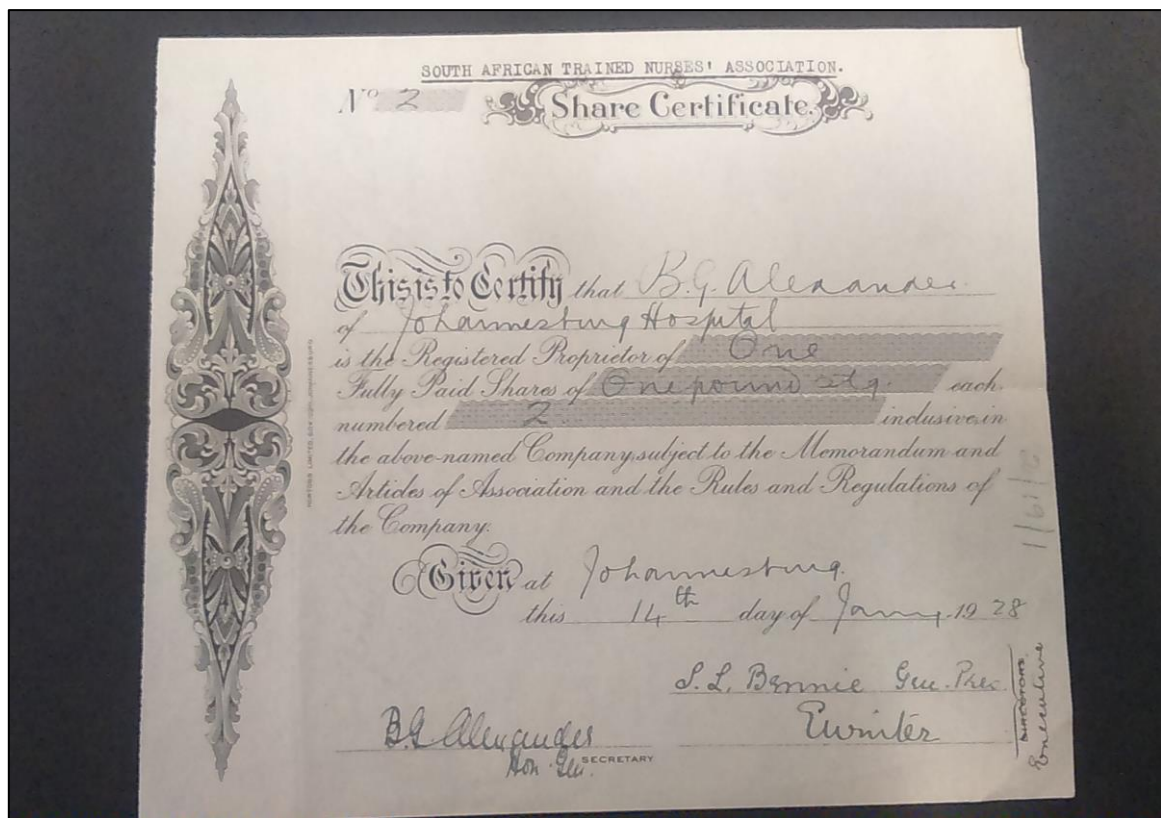 SOUTH AFRICAN TRAINED NURSES' ASSOCIATION.
No 2
Share Certificate.
This is to Certify that B.G. Alexander.
of Johannesburg Hospital
is the Registered Proprietor of One
Fully Paid Shares of One pound stg. each.
numbered 2 inclusive, in
the above-named Company, subject to the Memorandum and
Articles of Association and the Rules and Regulations of
the Company.
Given at Johannesburg.
this 14th day of Janry. 1928
S. L. Bennie Gen. Pres.
B G Alexander
Hon. Gen. SECRETARY
DIRECTORS
Executive